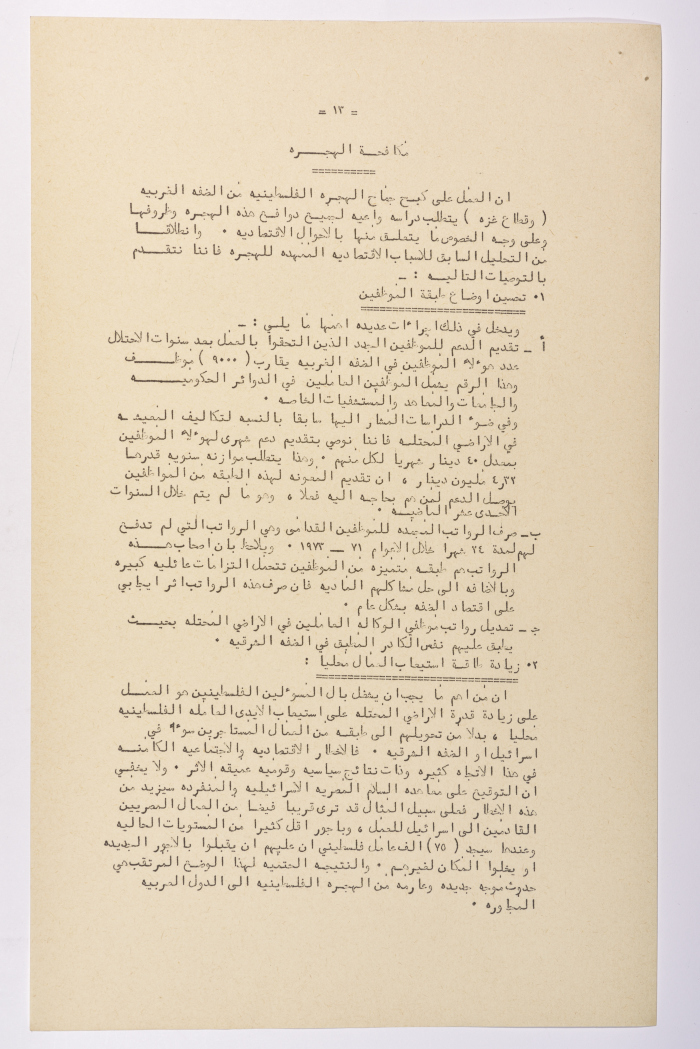 = ١٣ =
مكافحة الهجره
==========
ان العمل على كبح جماح الهجره الفلسطينيه من الضفه الغربيه
( وقطاع غزه ) يتطلب دراسه واعيه لجميع دوافع هذه الهجره وظروفها
وعلى وجه الخصوص ما يتعلق منها بالاحوال الاقتصاديه ٠ وانطلاقا
من التحليل السابق للاسباب الاقتصاديه الممهده للهجره فاننا نتقدم
بالتوصيات التاليه : ــ
١٠ تحسين اوضاع طبقة الموظفين
==========================
ويدخل في ذلك اجراءات عديده اهمها ما يلي : ــ
أ ــ تقديم الدعم للموظفين الجدد الذين التحقوا بالعمل بعد سنوات الاحتلال
عدد هوءلاء الموظفين في الضفه الغربيه يقارب ( ٩٠٠٠ ) موظف
وهذا الرقم يشمل الموظفين العاملين في الدوائر الحكوميه
والجامعات والمعاهد والمستشفيات الخاصه ٠
وفي ضوء الدراسات المشار اليها سابقا بالنسبه لتكاليف المعيشه
في الاراضي المحتله فاننا نوصي بتقديم دعم شهرى لهوءلاء الموظفين
بمعدل ٤٠ دينار شهريا لكل منهم ٠ وهذا يتطلب موازنه سنويه قدرها
٤٫٣٢ مليون دينار ، ان تقديم المعونه لهذه الطبقه من المواطنين
يوصل الدعم لمن هم بحاجه اليه فعلا ، وهو ما لم يتم خلال السنوات
الاحدى عشر الماضيه ٠
ب ــ صرف الرواتب المجمده للموظفين القدامى وهي الرواتب التي لم تدفع
لهم لمدة ٢٤ شهرا خلال الاعوام ٧١ ــ ١٩٧٣ ٠ ويلاحظ بان اصحاب هذه
الرواتب هم طبقه متميزه من الموظفين تتحمل التزامات عائليه كبيره
وبالاضافه الى حل مشاكلهم الماديه فان صرف هذه الرواتب اثر ايجابي
على اقتصاد الضفه بشكل عام ٠
جـ ــ تعديل رواتب موظفي الوكاله العاملين في الاراضي المحتله بحيث
يطبق عليهم نفس الكادر المطبق في الضفه الشرقيه ٠
٢٠ زيادة طاقة استيعاب العمال محليا :
==============================
ان من اهم ما يجب ان يشغل بال المسوءلين الفلسطينين هو العمل
على زيادة قدرة الاراضي المحتله على استيعاب الايدى العامله الفلسطينيه
محليا ، بدلا من تحويلهم الى طبقه من العمال المستاجرين سوءا في
اسرائيل او الضفه الشرقيه ٠ فالاخطار الاقتصاديه والاجتماعيه الكامنه
في هذا الاتجاه كثيره وذات نتائج سياسيه وقوميه عميقه الاثر ٠ ولا يخفي
ان التوقيع على معاهده السلام المصريه الاسرائيليه والمنفرده سيزيد من
هذه الاخطار فعلى سبيل المثال قد ترى قريبا فيضا من العمال المصريين
القادمين الى اسرائيل للعمل ، وباجور اقل كثيرا من المستويات الحاليه
وعندها سيجد ( ٧٥ ) الف عامل فلسطيني ان عليهم ان يقبلوا بالاجور الجديده
او يخلوا المكان لغيرهم ٠ والنتيجه الحتميه لهذا الوضع المرتقب هي
حدوث موجه جديده وعارمه من الهجره الفلسطينيه الى الدول العربيه
المجاوره ٠